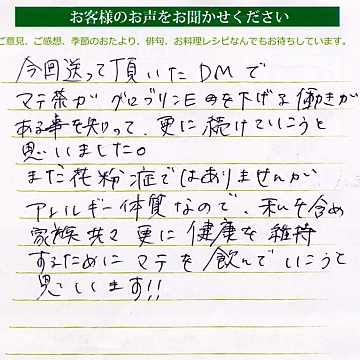 お客様のお声をお聞かせください
ご意見、ご感想、季節のおたより、俳句、お料理レシピなんでもお待ちしています。
今回送って頂いたDMで
マテ茶がグロブリンEのを下げる働きが
ある事を知って、更に続けていこうと
思いました。
まだ花粉症ではありませんが
アレルギー体質なので、私も含め
家族共々更に健康を維持
するためにマテを飲んでいこうと
思います!!